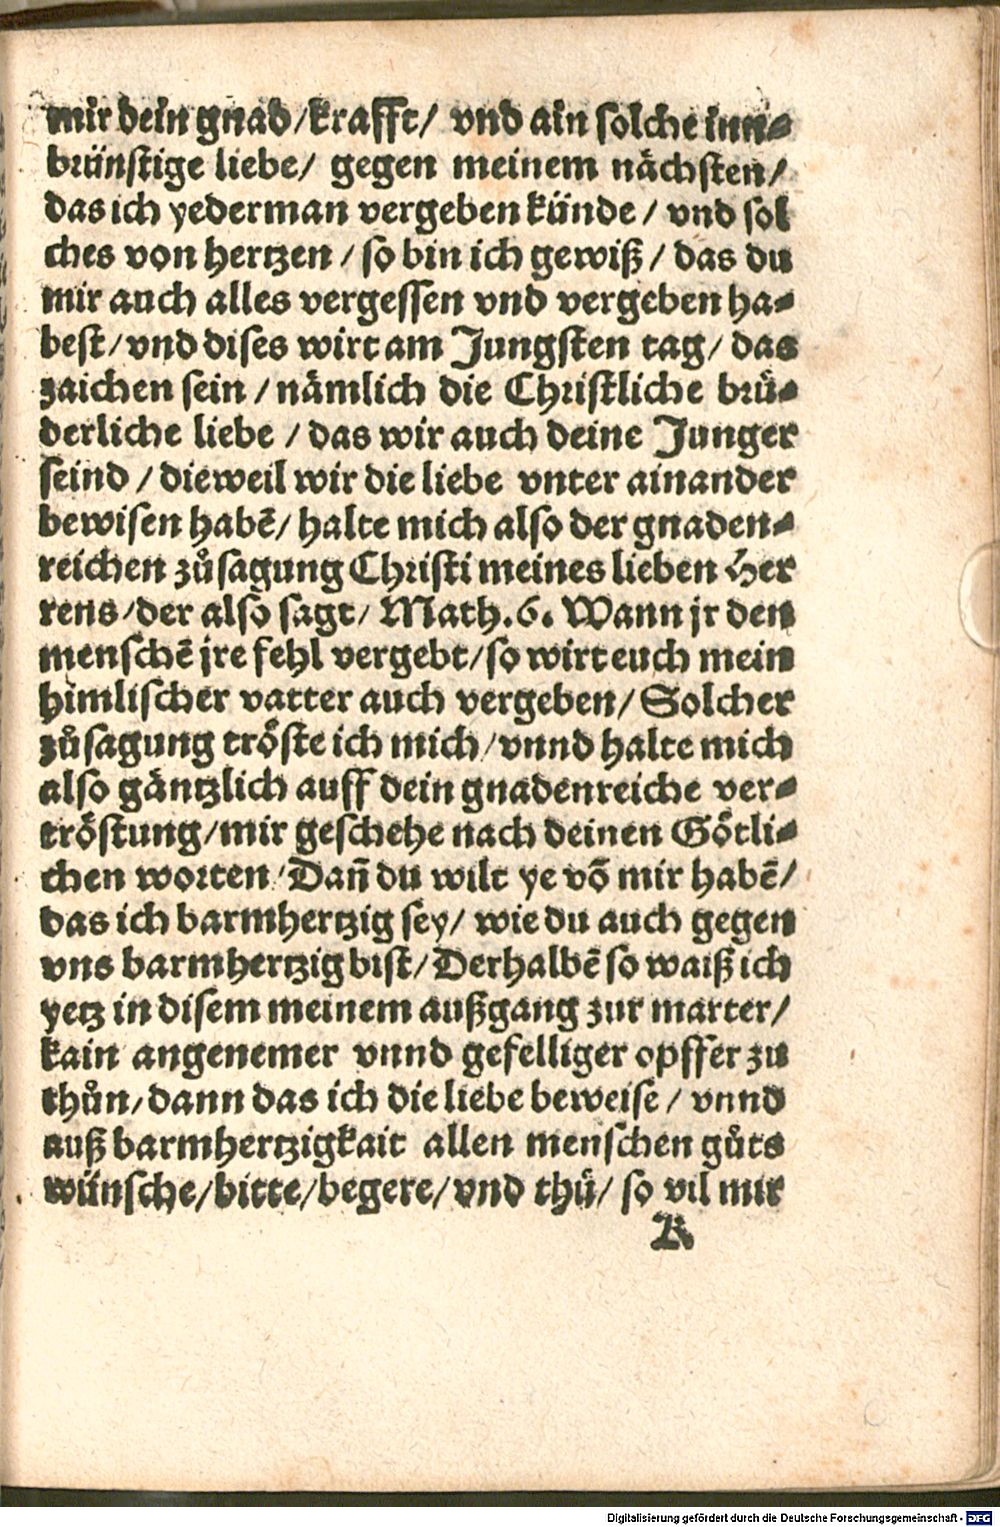 mir dein gnad / krafft / vnd ain solche inn⸗
brünstige liebe / gegen meinem nächsten /
das ich yederman vergeben künde / vnd sol
ches von hertzen / so bin ich gewiß / das du
mir auch alles vergessen vnd vergeben ha⸗
best / vnd dises wirt am Jungsten tag / das
zaichen sein / nämlich die Christliche brů⸗
derliche liebe / das wir auch deine Junger
seind / dieweil wir die liebe vnter ainander
bewisen habē / halte mich also der gnaden⸗
reichen zůsagung Christi meines lieben Her
rens / der also sagt / Math. 6. Wann jr den
menschē jre fehl vergebt / so wirt euch mein
himlischer vatter auch vergeben / Solcher
zůsagung tröste ich mich / vnnd halte mich
also gäntzlich auff dein gnadenreiche ver⸗
tröstung / mir geschehe nach deinen Götli⸗
chen worten / Dañ du wilt ye vō mir habē /
das ich barmhertzig sey / wie du auch gegen
vns barmhertzig bist / Derhalbē so waiß ich
yetz in disem meinem außgang zur marter /
kain angenemer vnnd gefelliger opffer zu
thůn / dann das ich die liebe beweise / vnnd
auß barmhertzigkait allen menschen gůts
wünsche / bitte / begere / vnd thů / so vil mir
R
Digitalisierung gefördert durch die Deutsche Forschungsgemeinschaft - DFG